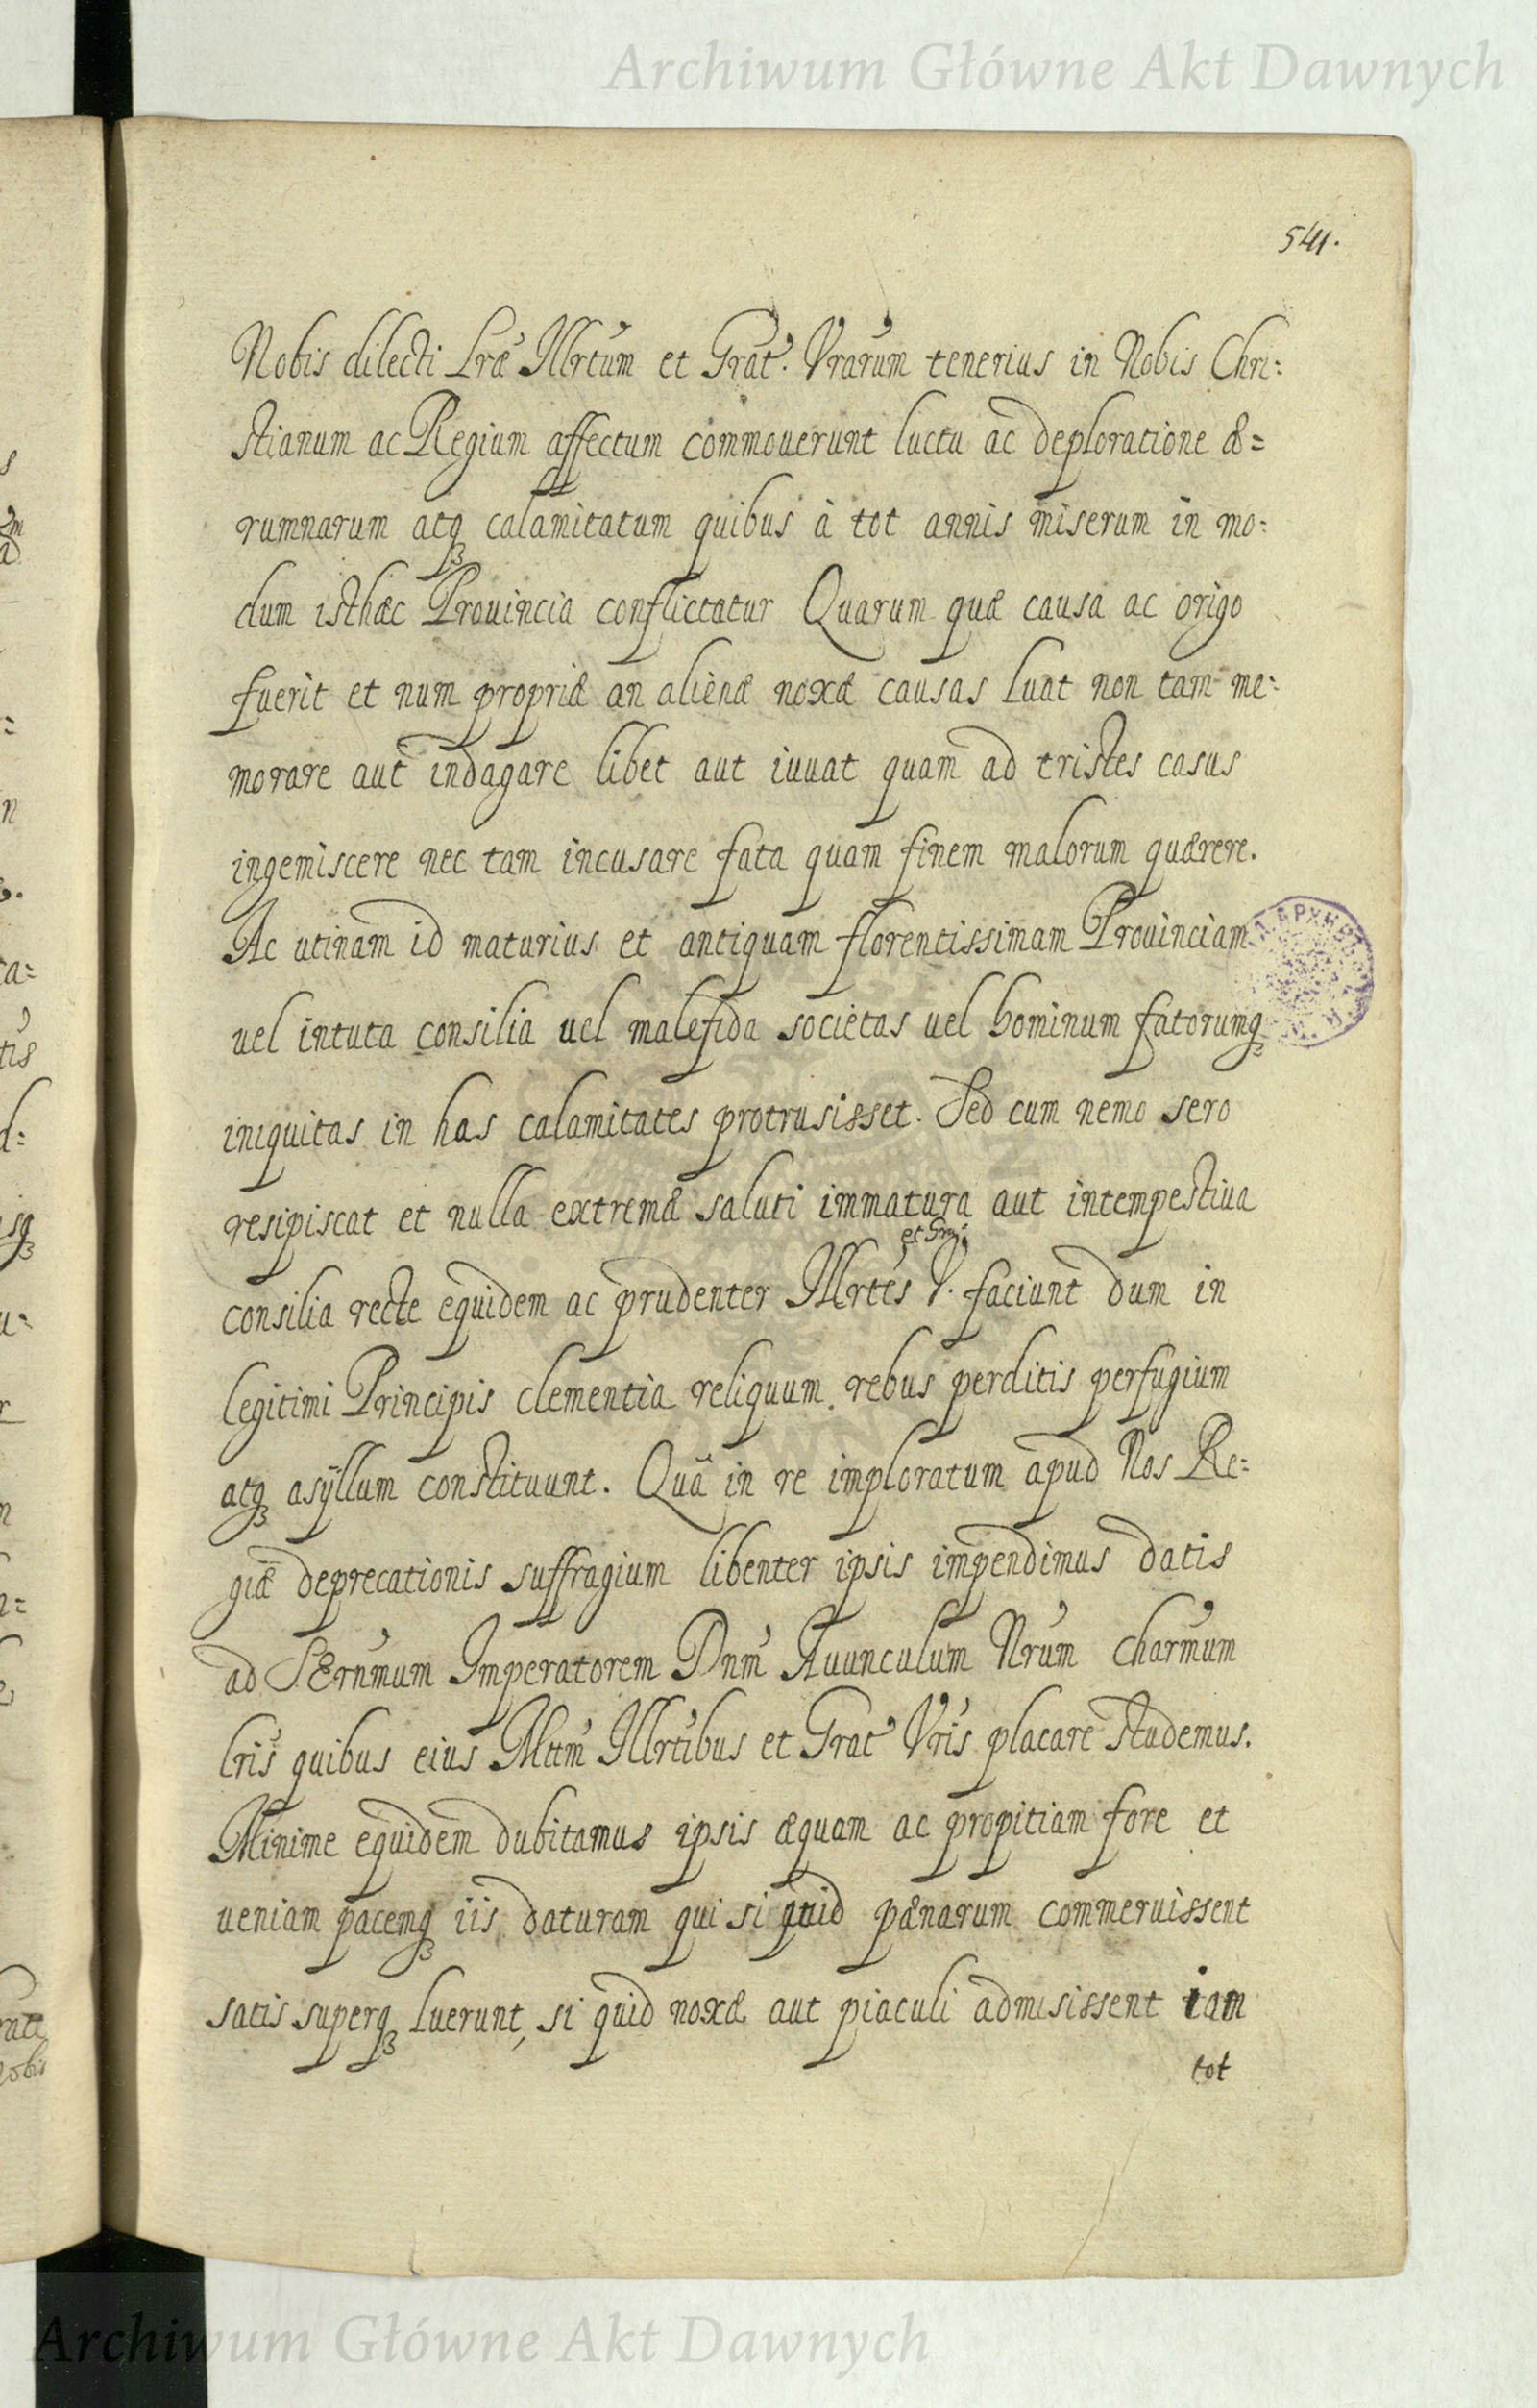 Archiwum Główne Akt Dawnych
541.
Nobis dilecti Lræ Illrtum et Grat. Vrarum tenerius in Nobis Chri:
stianum ac Regium affectum commouerunt luctu ac deploratione æ=
rumnarum atq calamitatum quibus à tot annis miserum in mo:
dum isthæc Prouincia conflictatur Quarum quæ causa ac origo
fuerit et num propriæ an alienæ noxæ causas luat non tam me:
morare aut indagare libet aut iuuat quam ad tristes casus
ingemiscere nec tam incusare fata quam finem malorum quærere.
Ac utinam id maturius et antiquam florentissimam Prouinciam
uel intuta consilia uel malefida societas uel hominum fatorumq
iniquitas in has calamitates protrusisset. Sed cum nemo sero
resipiscat et nulla extremæ saluti immatura aut intempestiua
et Gra:
consilia recte equidem ac prudenter Illrtes V. faciunt dum in
legitimi Principis clementia reliquum rebus perditis perfugium
atq asÿllum constituunt. Quâ in re imploratum apud Nos Re:
giæ deprecationis suffragium libenter ipsis impendimus datis
ad SErnmum Imperatorem Dnm Auunculum Nrum Charmum
lris quibus eius Mttm Illrtibus et Grat Vris placare studemus.
Minime equidem dubitamus ipsis æquam ac propitiam fore et
ueniam pacemq iis daturam qui si quid pænarum commeruissent
satis superq luerunt, si quid noxæ aut piaculi admisissent iam
tot
Archiwum Główne Akt Dawnych